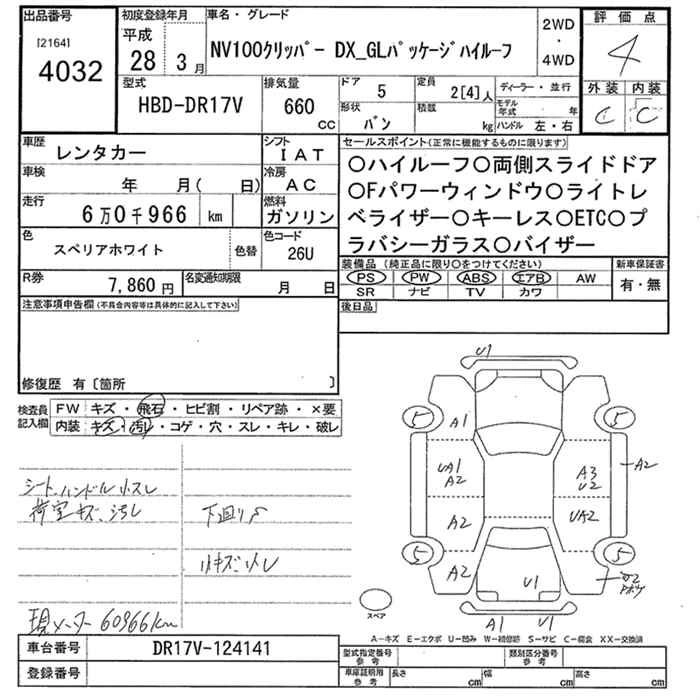 出品番号
[2164]
4032
初度登録年月
平成
28年 3月
車名・グレード
NV100クリッパー DX_GLパッケージハイルーフ
2WD
・
4WD
評価点
4
外装 内装
C C
型式
HBD-DR17V
排気量
660
CC
ドア
5
形状
バン
定員
2[4]人
積載
kg
ディーラー・並行
モデル年式 年
ハンドル 左・右
車歴
レンタカー
シフト
IAT
車検
年 月( 日)
冷房
AC
走行
6万0千966 km
燃料
ガソリン
色
スペリアホワイト
色替
色コード
26U
R券
7,860円
名変通知期限
月 日
セールスポイント(正常に機能するものに限ります)
○ハイルーフ○両側スライドドア
○Fパワーウィンドウ○ライトレ
ベライザー○キーレス○ETC○プ
ラバシーガラス○バイザー
装備品(純正品に限り○をつけてください)
PS PW ABS エアB AW
SR ナビ TV カワ
新車保証書
有・無
注意事項申告欄(不具合内容等は具体的に記入して下さい)
後日品
修復歴 有〔箇所 〕
検査員記入欄
FW キズ・飛石・ヒビ割・リペア跡・×要
内装 キズ・汚れ・コゲ・穴・スレ・キレ・破レ
シート、ハンドル小スレ
荷室キズ、汚レ
下回りサ
小キズ、小凹
現メーター 60966km
U1
5 5
A1
UA1
A2
A3
U2
A2
A2
UA2
5 5
A2
U1
A1 U1
スペア
A-キズ E-エクボ U-凹み W-補修跡 S-サビ C-腐食 XX-交換済
車台番号
DR17V-124141
登録番号
型式指定番号
参考
類別区分番号
参考
車庫証明用
参考
長さ cm
幅 cm
高さ cm